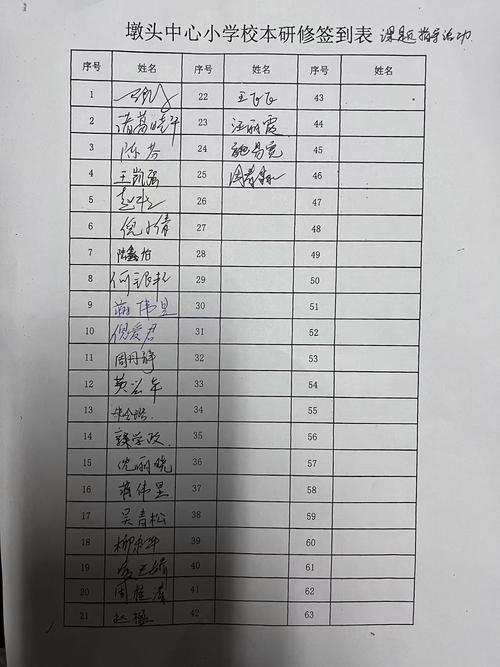 墩头中心小学校本研修签到表 课题指导活动
序号 姓名 序号 姓名 序号 姓名
1 22 王飞飞 43
2 诸葛晓平 23 汪丽霞 44
3 陈芬 24 施易宽 45
4 王凯强 25 46
5 26 47
6 倪小倩 27 48
7 陆鑫怡 28 49
8 何银松 29 50
9 蒋伟星 30 51
10 倪爱君 31 52
11 周丹婷 32 53
12 黄谷年 33 54
13 34 55
14 龚学政 35 56
15 倪丽晓 36 57
16 蒋伟星 37 58
17 吴青松 38 59
18 39 60
19 40 61
20 周桂清 41 62
21 赵樱 42 63